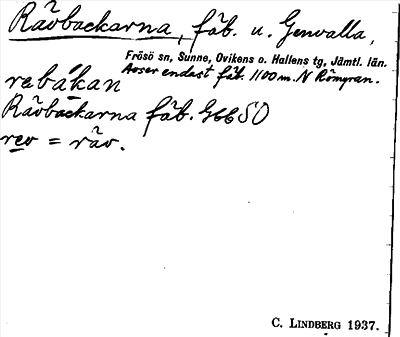 Rävbackarna, fäb. u. Genvalla,
Frösö sn, Sunne, Ovikens o. Hallens tg, Jämtl. län.
Avser endast fäb. 1100 m. N Römyran.
rebákan
Rävbackarna fäb. G66SO
rev = räv.
C. LINDBERG 1937.